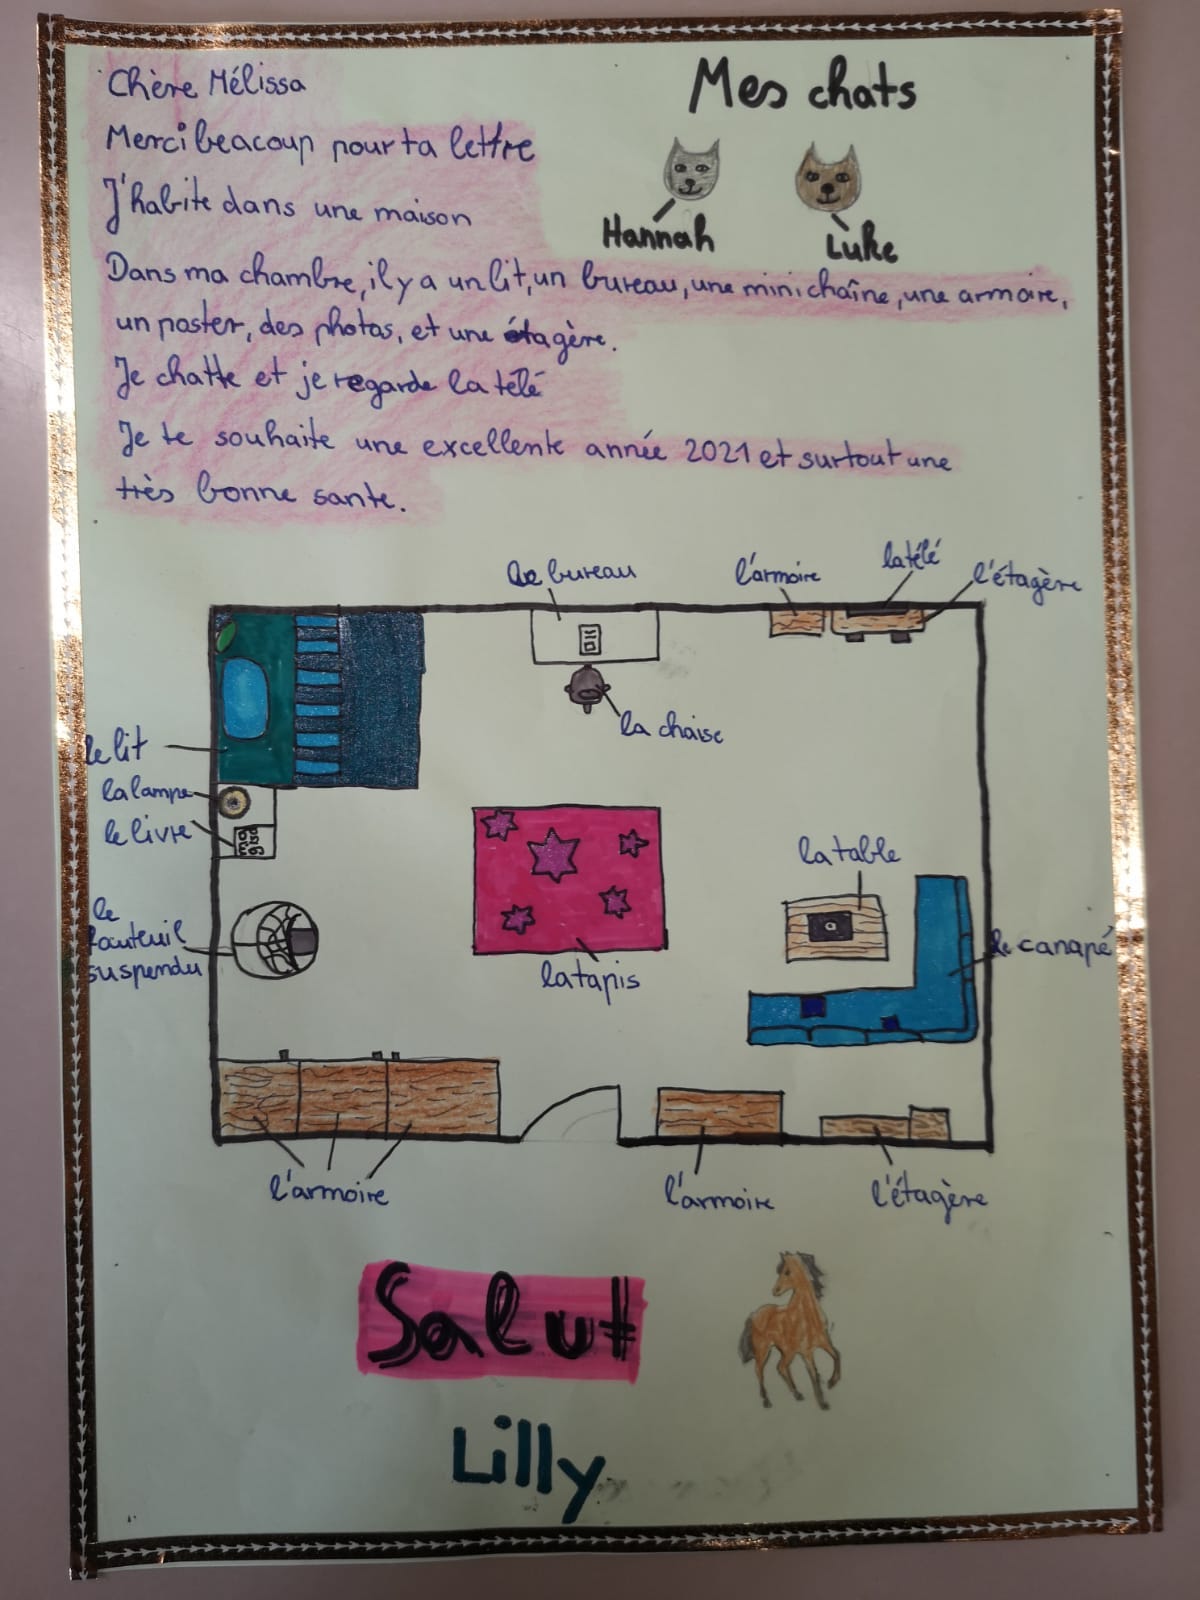 Chère Mélissa
Merci beacoup pour ta lettre
J'habite dans une maison
Dans ma chambre, il y a un lit, un bureau, une mini chaîne, une armoire,
un poster, des photos, et une étagère.
Je chatte et je regarde la télé
Je te souhaite une excellente année 2021 et surtout une
très bonne sante.
Mes chats
Hannah
Luke
le bureau
l'armoire
la télé
l'étagère
la chaise
le lit
la lampe
le livre
la table
le
fauteuil
suspendu
la tapis
le canapé
l'armoire
l'armoire
l'étagère
Salut
Lilly